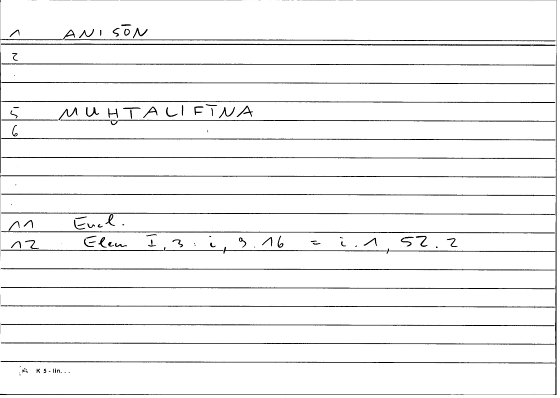 1 ANISŌN
2
5 MUḪTALIFĪNA
6
11 Eucl.
12 Elem I, 3 : i, 9.16 = i.1, 52.2
K 5 - lin...